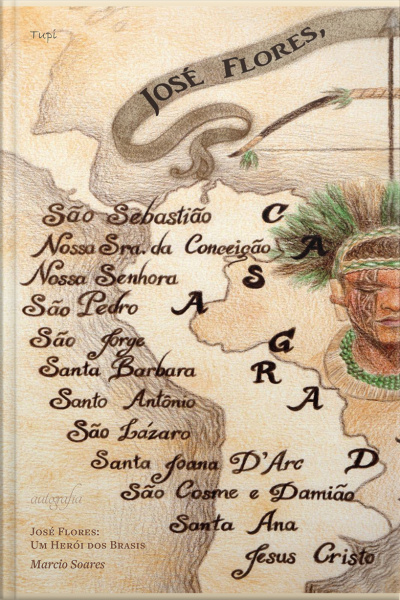 Tupi
JOSÉ FLORES,
São Sebastião
Nossa Sra. da Conceição
Nossa Senhora
São Pedro
São Jorge
Santa Barbara
Santo Antônio
São Lázaro
Santa Joana D'Arc
São Cosme e Damião
Santa Ana
Jesus Cristo
C A S A
G R A D
autografia
JOSÉ FLORES:
UM HERÓI DOS BRASIS
Marcio Soares